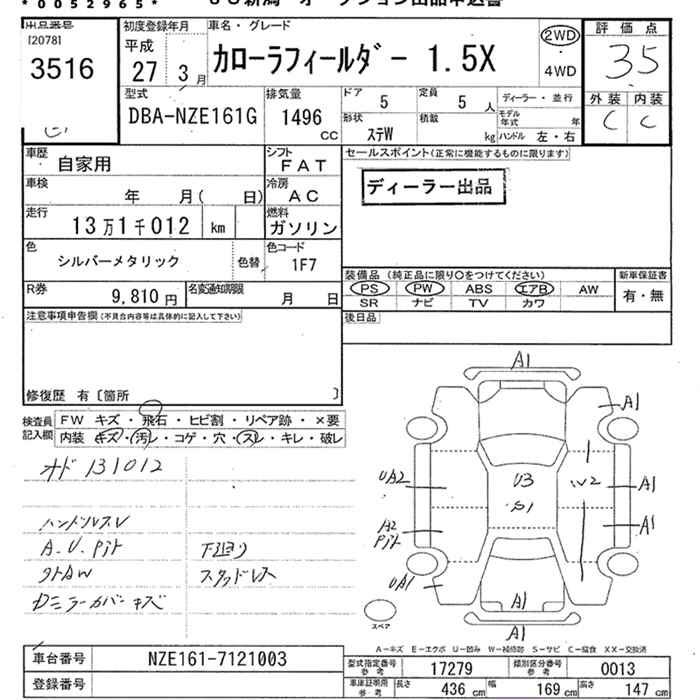 *0052965*
ＵＳ新潟　オークション出品申込書
出品番号
[2078]
3516
初度登録年月
平成
27 3 月
車名・グレード
カローラフィールダー 1.5X
2WD
・
4WD
評価点
35
外装 内装
C C
型式
DBA-NZE161G
排気量
1496
CC
ドア
5
定員
5 人
ディーラー・並行
形状
ステW
積載
kg
モデル年式 年
ハンドル 左・右
車歴
自家用
シフト
FAT
セールスポイント(正常に機能するものに限ります)
ディーラー出品
車検
年 月( 日)
冷房
AC
走行
13万1千012 km
燃料
ガソリン
色
シルバーメタリック
色替
色コード
1F7
装備品 (純正品に限り○をつけてください)
新車保証書
PS PW ABS エアB AW
SR ナビ TV カワ
有・無
R券
9,810 円
名変通知期限
月 日
後日品
注意事項申告欄(不具合内容等は具体的に記入して下さい)
修復歴 有〔箇所 〕
検査員
記入欄
FW キズ・飛石・ヒビ割・リペア跡・×要
内装 キズ・汚レ・コゲ・穴・スレ・キレ・破レ
オド 131012
ハンドルスレ
A.U.Pit 下廻り
タイヤW スタッドレス
ロニラーカバーキズ
A1
A1
UA2
U3
S1
W2
A1
A2
Pit
A1
UA1
A1
A1
スペア
A－キズ E－エクボ U－凹み W－補修跡 S－サビ C－腐食 XX－交換済
車台番号
NZE161-7121003
登録番号
型式指定番号
参考
17279
類別区分番号
参考
0013
車庫証明用
参考
長さ
436 cm
幅
169 cm
高さ
147 cm